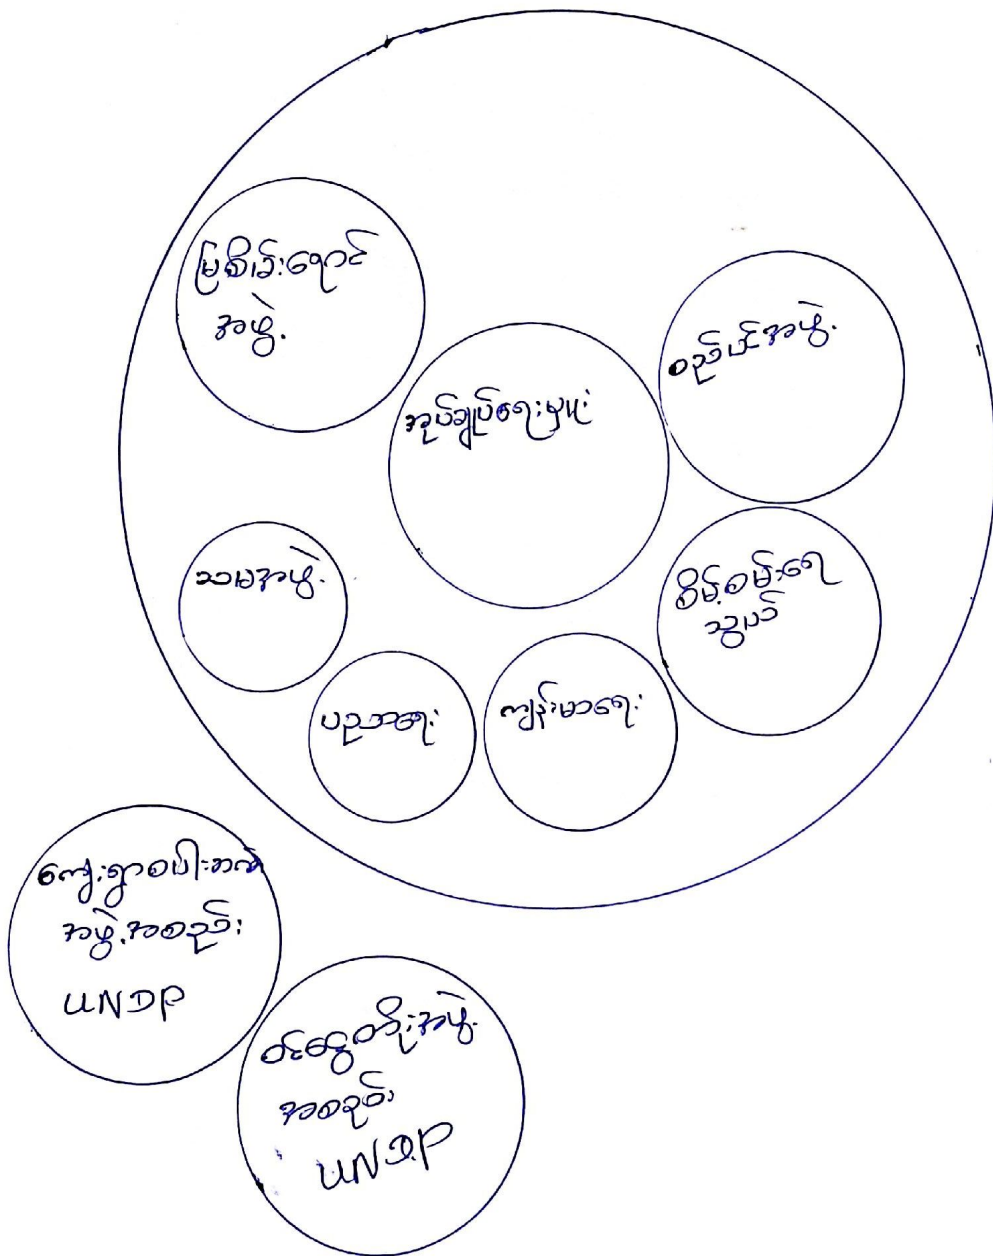 မြစိမ်းရောင်
အဖွဲ့
စည်ပင်အဖွဲ့
အုပ်ချုပ်ရေးမှူး
သမအဖွဲ့
စိမ့်စမ်းရေ
သွယ်
ပညာရေး
ကျန်းမာရေး
ကျေးရွာစပါးဘဏ်
အဖွဲ့အစည်း
UNDP
ဝင်ငွေတိုးအဖွဲ့
အစည်း
UNDP